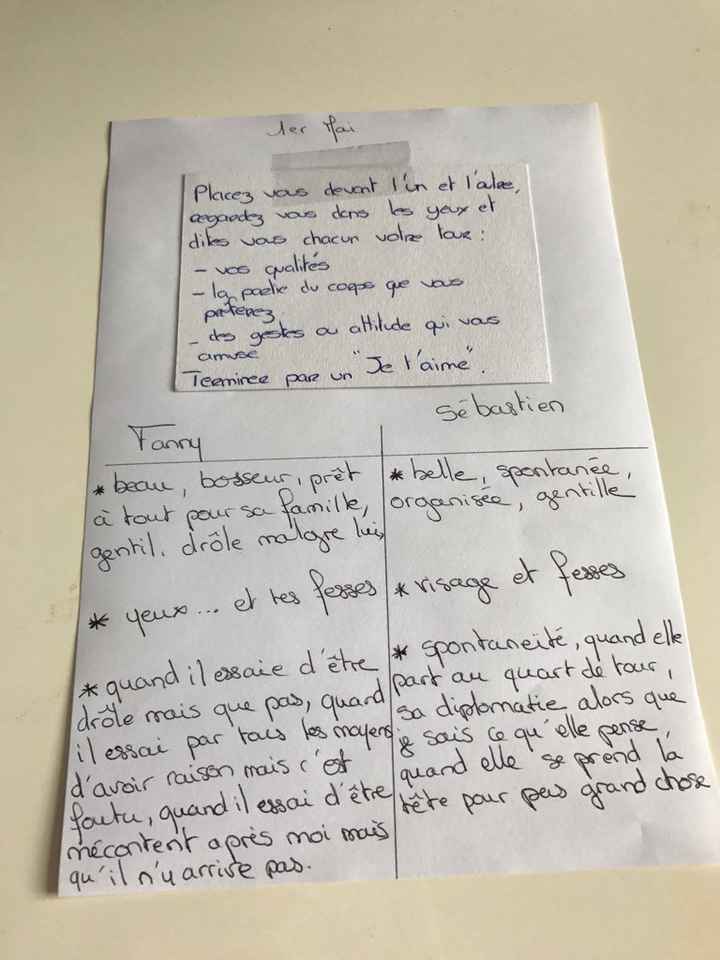 1er Mai
Placez vous devant l'un et l'autre,
regardez vous dans les yeux et
dites vous chacun votre tour :
- vos qualités
- la partie du corps que vous
préférez
- des gestes ou attitude qui vous
amuse
Terminez par un "Je t'aime".
Fanny
* beau, bosseur, prêt
à tout pour sa famille,
gentil, drôle malgré lui,
* yeux... et tes fesses
* quand il essaie d'être
drôle mais que pas, quand
il essai par tous les moyens
d'avoir raison mais c'est
foutu, quand il essai d'être
mécontent après moi mais
qu'il n'y arrive pas.
Sébastien
* belle, spontanée,
organisée, gentille
* visage et fesses
* spontaneité, quand elle
part au quart de tour,
sa diplomatie alors que
je sais ce qu'elle pense,
quand elle se prend la
tête pour pas grand chose